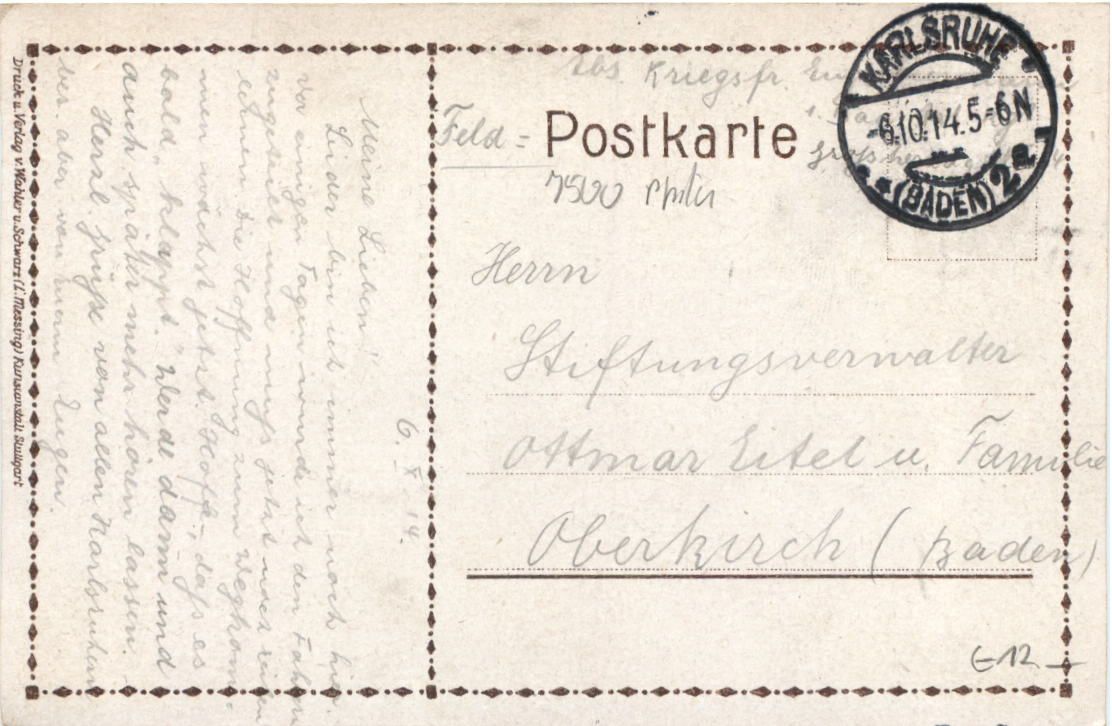 Druck u. Verlag v. Wahler u. Schwarz (L. Messing) Kunstanstalt Stuttgart
6. X. 14.
Meine Lieben!
Leider bin ich immer noch hier.
Vor einigen Tagen wurde ich den Fahrern
zugeteilt und muß jetzt noch einen
die Hoffnung zum Wegkom-
men wächst jetzt. Hoffe, daß es
bald „klappt". Werde dann und
auch später mehr hören lassen.
Herzl. Grüße von allen Karlsruhern
bes. aber von eurem Eugen.
Abs. Kriegsfr.
Feld = Postkarte
7500
KARLSRUHE
-6.10.14.5-6N
(BADEN) 2a
Herrn
Stiftungsverwalter
Ottmar Eitel u. Familie
Oberkirch (Baden)
E12.—